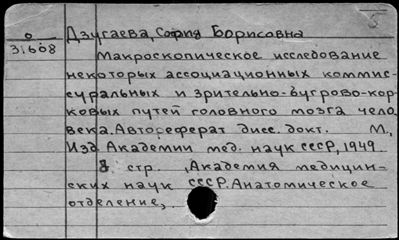 5
о Дзугаева, София Борисовна
31608
Макроскопическое исследование
некоторых ассоциационных комис-
суральных и зрительно-бугрово-кор-
ковых путей головного мозга чело-
века. Автореферат дисс. докт. М.,
Изд. Академии мед. наук СССР, 1949
8 стр. (Академия медицин-
ских наук СССР. Анатомическое
отделение,